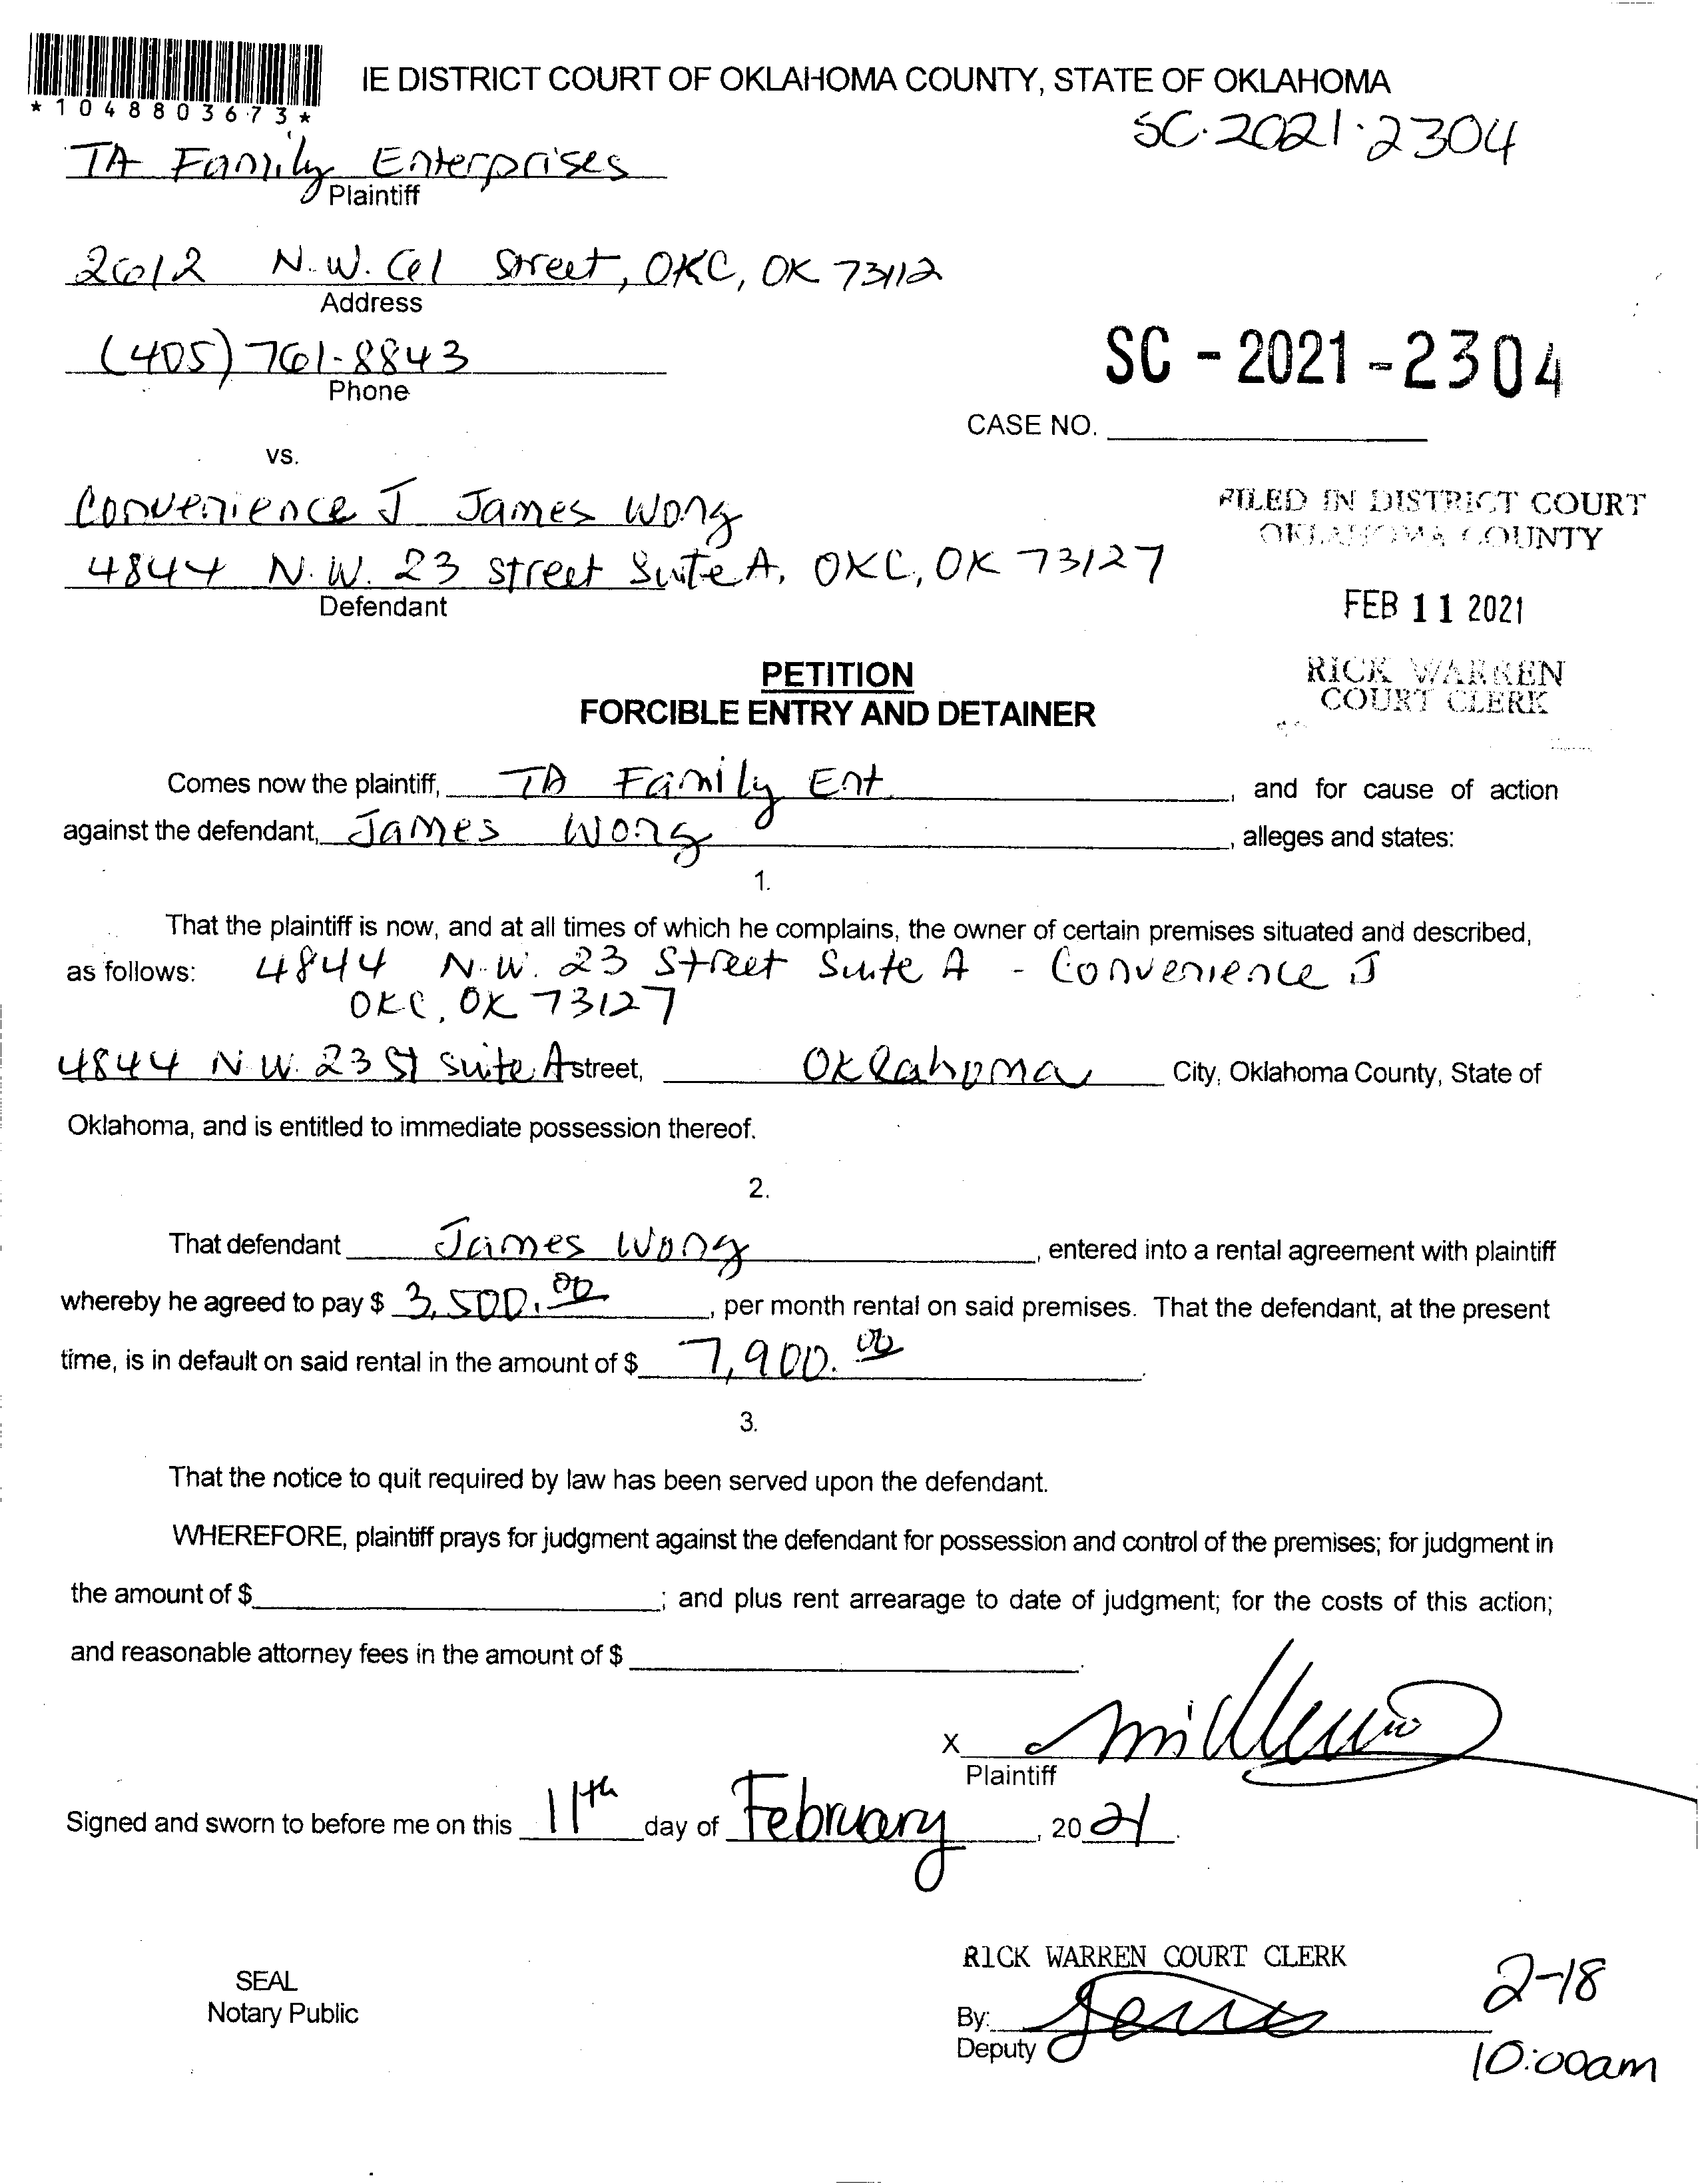 *1048803673*
IE DISTRICT COURT OF OKLAHOMA COUNTY, STATE OF OKLAHOMA
SC-2021-2304
TA Family Enterprises
Plaintiff
2612 N.W. 61 Street, OKC, OK 73112
Address
(405) 761-8843
Phone
SC - 2021 - 2304
CASE NO.
vs.
Convenience J James Wong
4844 N.W. 23 street Suite A, OKC, OK 73127
Defendant
FILED IN DISTRICT COURT
OKLAHOMA COUNTY
FEB 11 2021
RICK WARREN
COURT CLERK
PETITION
FORCIBLE ENTRY AND DETAINER
Comes now the plaintiff, TA Family Ent, and for cause of action
against the defendant, James Wong, alleges and states:
1.
That the plaintiff is now, and at all times of which he complains, the owner of certain premises situated and described,
as follows: 4844 N.W. 23 Street Suite A - Convenience J
OKC, OK 73127
4844 N.W. 23 St Suite A street, Oklahoma City, Oklahoma County, State of
Oklahoma, and is entitled to immediate possession thereof.
2.
That defendant James Wong, entered into a rental agreement with plaintiff
whereby he agreed to pay $ 3,500.00, per month rental on said premises. That the defendant, at the present
time, is in default on said rental in the amount of $ 7,900.00.
3.
That the notice to quit required by law has been served upon the defendant.
WHEREFORE, plaintiff prays for judgment against the defendant for possession and control of the premises; for judgment in
the amount of $ ; and plus rent arrearage to date of judgment; for the costs of this action;
and reasonable attorney fees in the amount of $ .
X
Plaintiff
Signed and sworn to before me on this 11th day of February, 2021.
SEAL
Notary Public
RICK WARREN COURT CLERK
By:
Deputy
2-18
10:00am